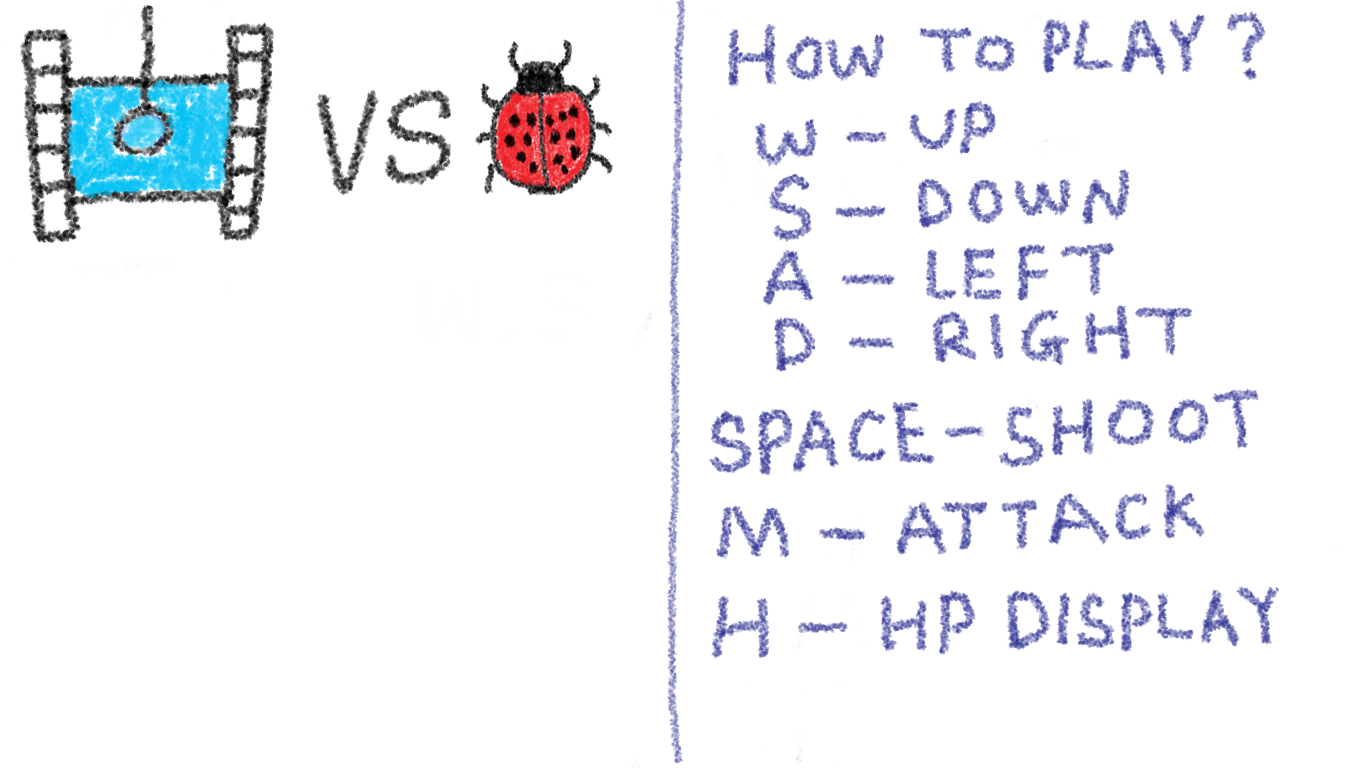 VS
HOW TO PLAY?
W - UP
S - DOWN
A - LEFT
D - RIGHT
SPACE - SHOOT
M - ATTACK
H - HP DISPLAY